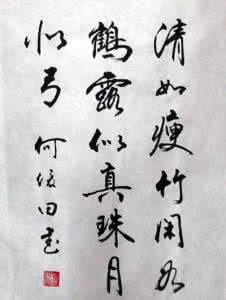 清如瘦竹闲如
鶴露似真珠月
似弓 何俊田